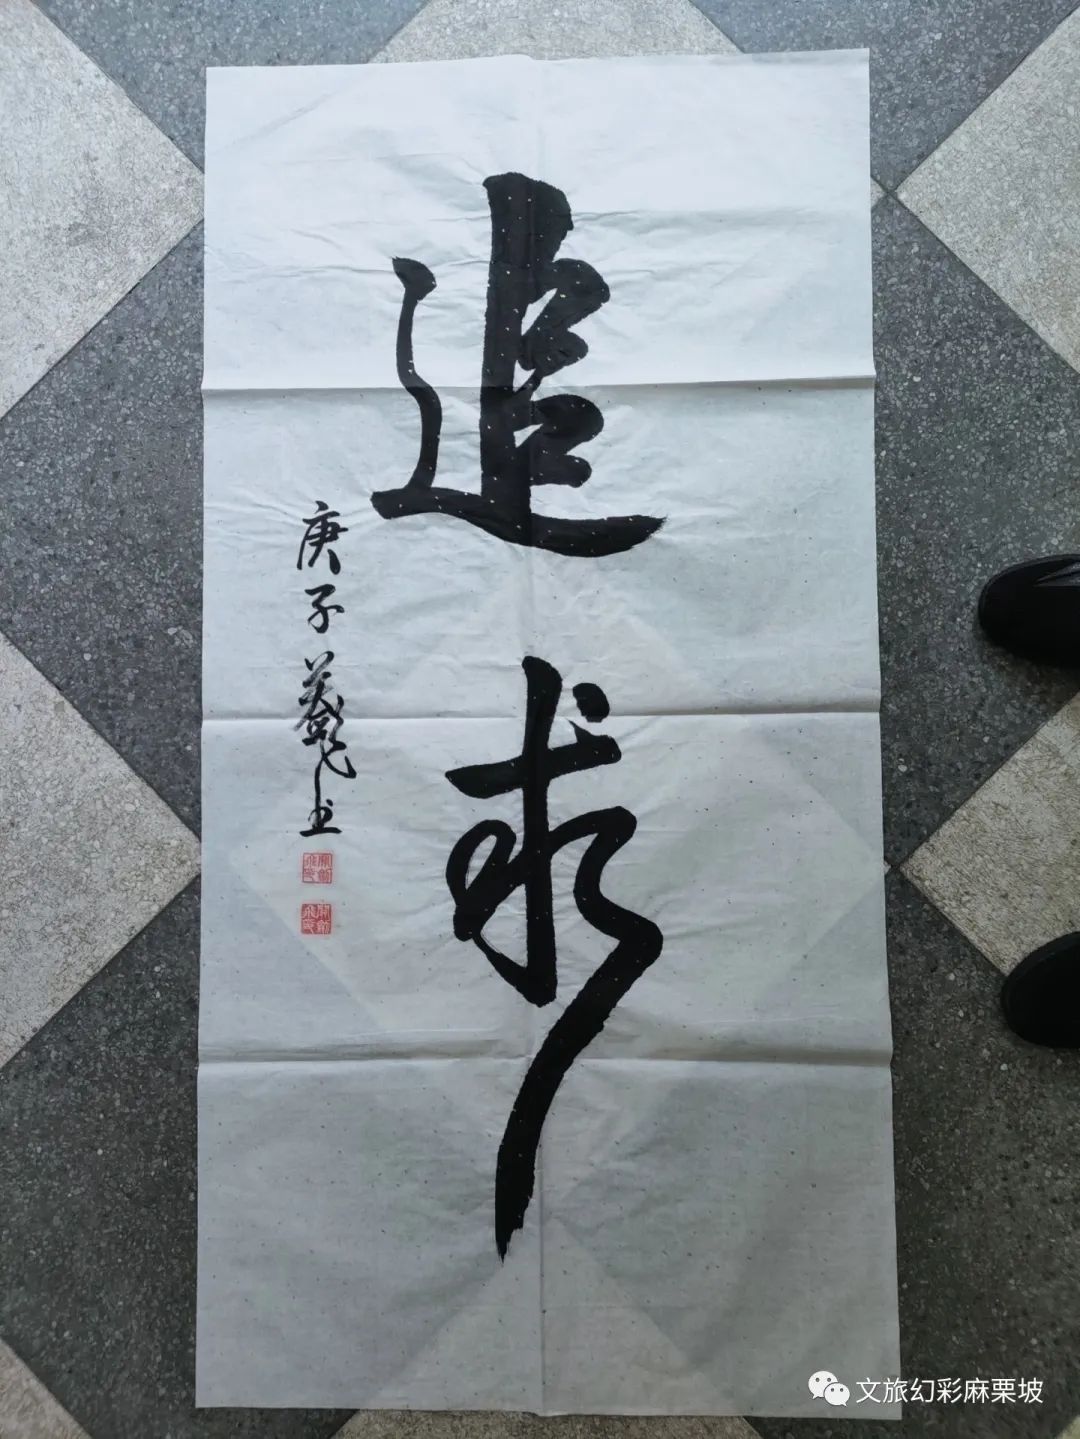 追求
庚子
书
文旅幻彩麻栗坡